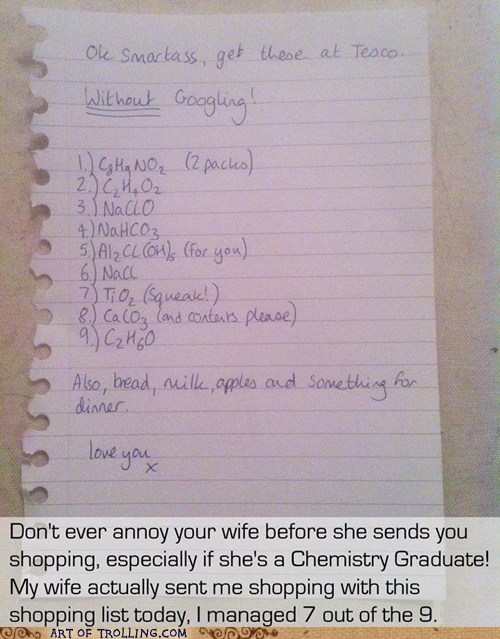 Ok Smartass, get these at Tesco.
Without Googling!
1.) C₈H₉NO₂ (2 packs)
2.) C₂H₄O₂
3.) NaClO
4.) NaHCO₃
5.) Al₂Cl(OH)₅ (for you)
6.) NaCl
7.) TiO₂ (Squeak!)
8.) CaCO₃ (and contents please)
9.) C₂H₆O
Also, bread, milk, apples and something for
dinner.
love you
x
Don't ever annoy your wife before she sends you
shopping, especially if she's a Chemistry Graduate!
My wife actually sent me shopping with this
shopping list today, I managed 7 out of the 9.
ART OF TROLLING.COM